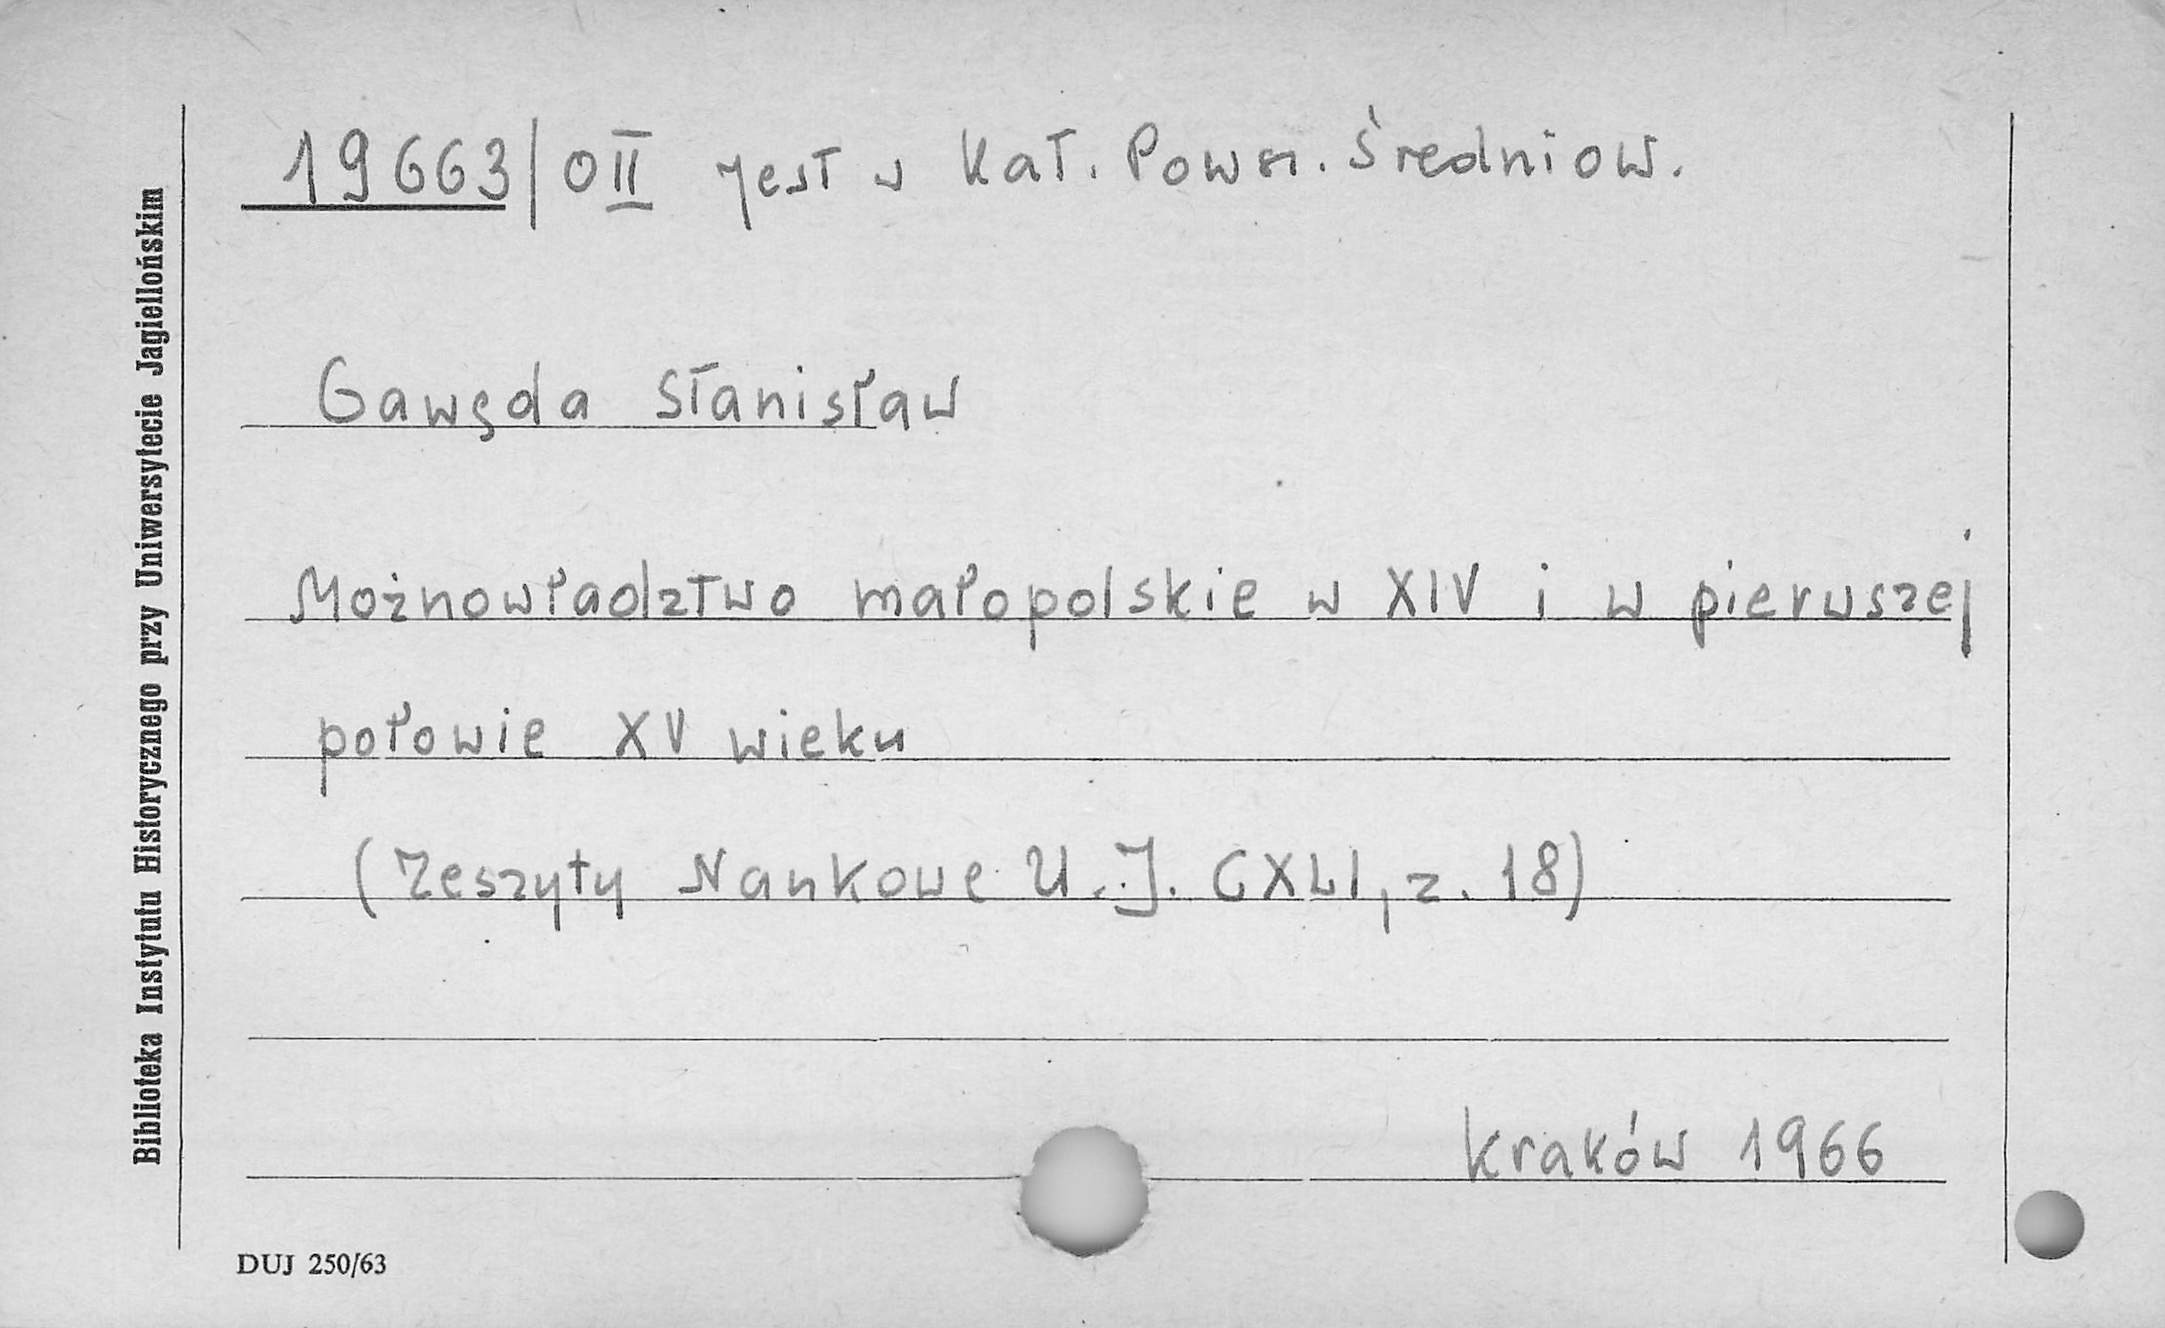 19663/OII jest w Kat. Powsz. Średniow.
Gawęda Stanisław
Możnowładztwo małopolskie w XIV i w pierwszej
połowie XV wieku
(Zeszyty Naukowe U.J. CXLI, z. 18)
Kraków 1966
DUJ 250/63
Biblioteka Instytutu Historycznego przy Uniwersytecie Jagiellońskim